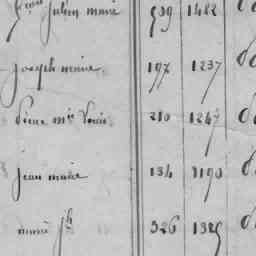 Jean Julien marie 539 1482
joseph marie 197 1237
Pierre mie Louis 210 1247
jean marie 134 3190
marie jh 326 1325